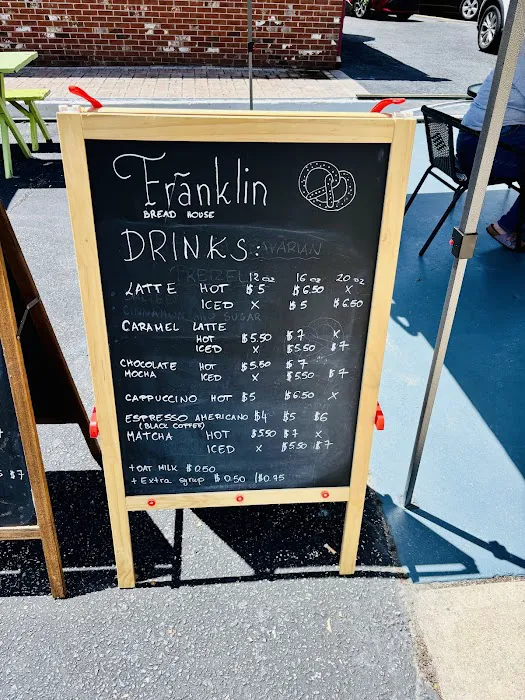 Franklin
BREAD HOUSE
DRINKS:
12 oz 16 oz 20 oz
LATTE HOT $5 $6.50 X
ICED X $5 $6.50
CARAMEL LATTE
HOT $5.50 $7 X
ICED X $5.50 $7
CHOCOLATE HOT $5.50 $7
MOCHA ICED X $5.50 $7
CAPPUCCINO HOT $5 $6.50 X
ESPRESSO AMERICANO $4 $5 $6
(BLACK COFFEE)
MATCHA HOT $5.50 $7 X
ICED X $5.50 $7
+OAT MILK $0.50
+ Extra syrup $0.50 |$0.75
$7